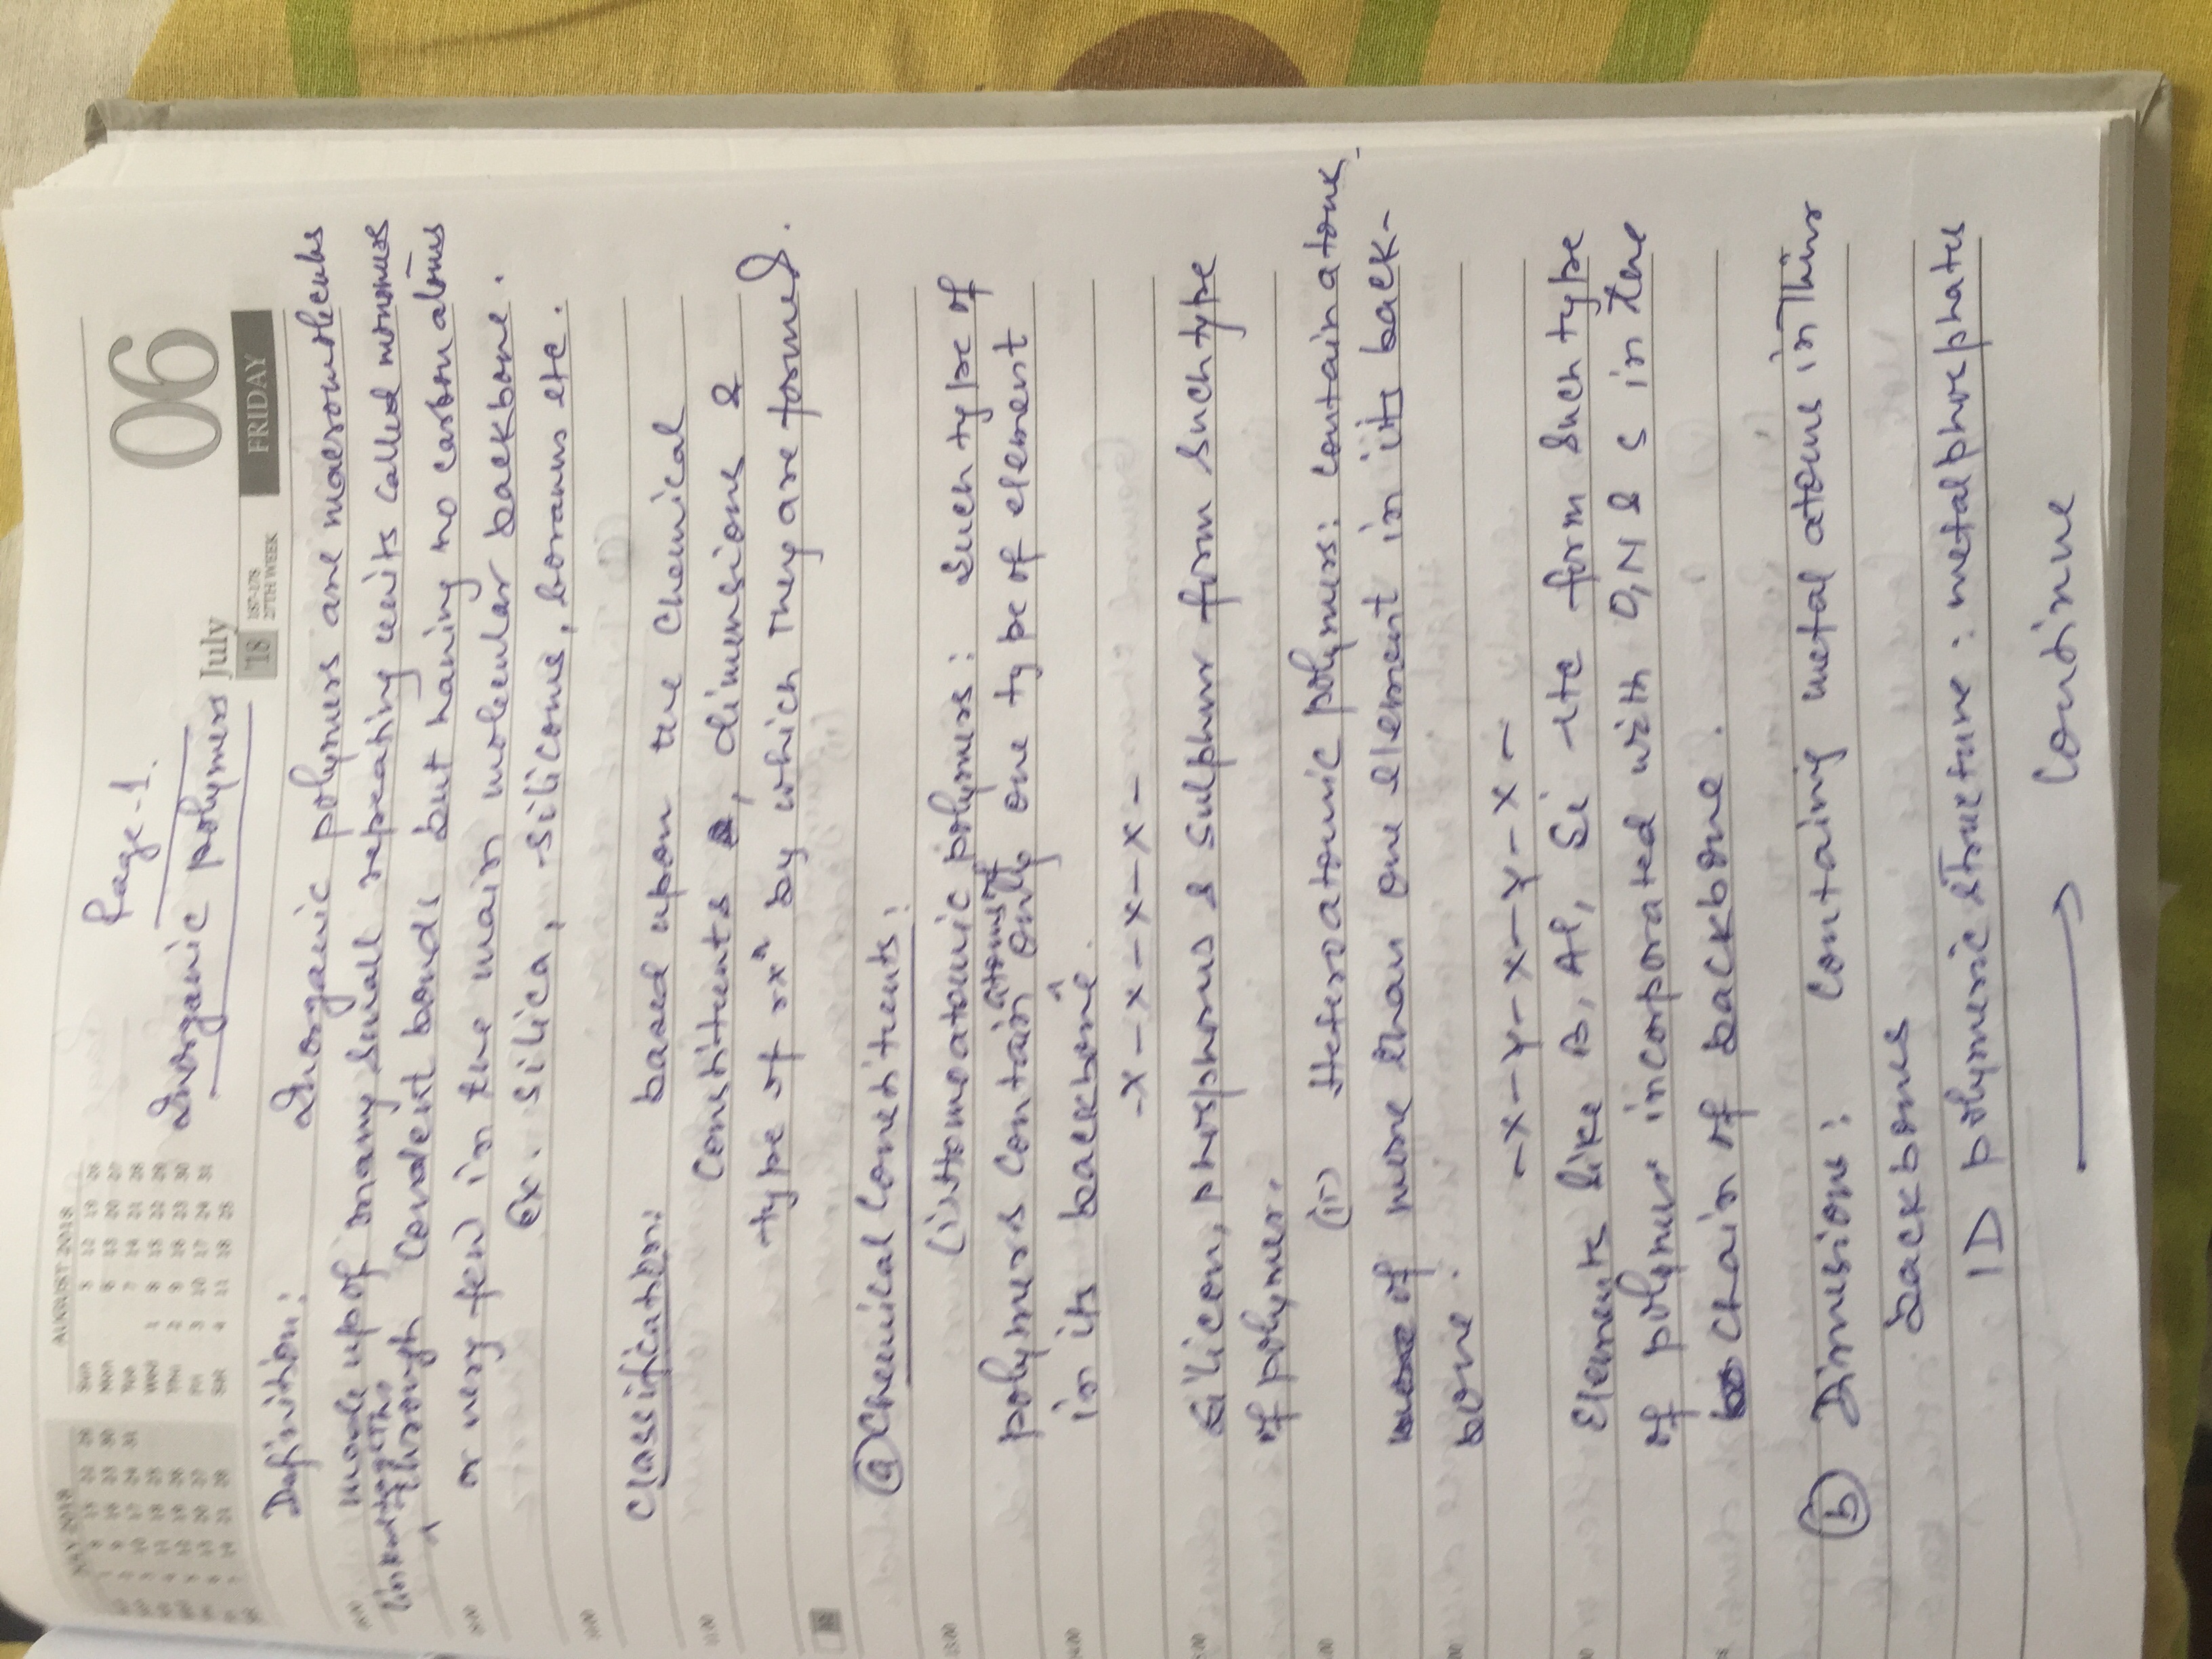 Page-1.
Inorganic polymers
July
06
'18
187-178
27TH WEEK
FRIDAY
MAY 2018
AUGUST 2018
Definition:
Inorganic polymers are macromolecules
made up of many small repeating units called monomers
linked together
through covalent bonds but having no carbon atoms
or very few in the main molecular backbone.
Ex. silica, silicone, boranes etc.
Classification: based upon the chemical
constituents, dimensions &
type of rxn by which they are formed.
(a) Chemical Constituents:
(i) Homoatomic polymers: Such type of
polymers contain atoms of only one type of element
in its backbone.
-X-X-X-X-
Silicon, phosphorus & sulphur form such type
of polymer.
(ii) Heteroatomic polymers: contain atoms
of more than one element in its back-
bone.
-X-Y-X-Y-X-
Elements like B, Al, Si etc form such type
of polymer incorporated with O, N & S in the
chain of backbone.
(b) Dimesions: Containing metal atoms in their
backbones
1D polymeric structure: metal phosphates
Continue